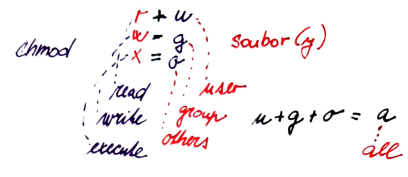 r + u
chmod w - g soubor(y)
x = o
read user
write group u+g+o = a
execute others all